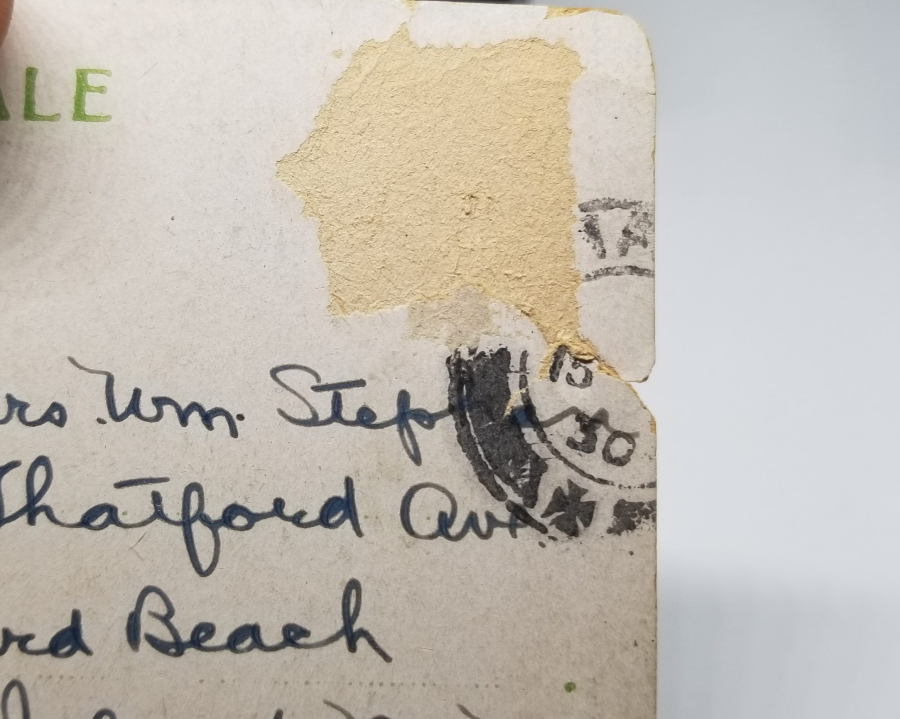 ALE
TA
15
30
rs Wm. Steph
Thatford Ave
rd Beach